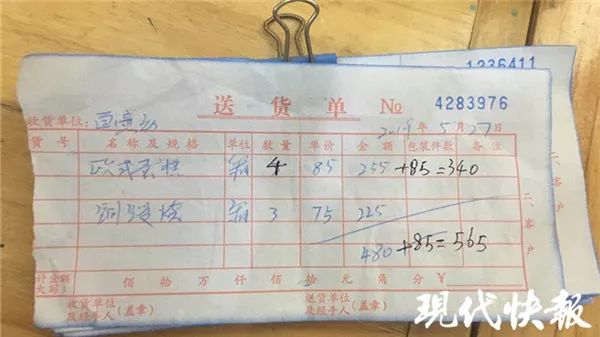 1236411
送货单 № 4283976
收货单位:
年 5月27日
货号 名称及规格 单位 数量 单价 金额 包装件数 备注
欧式蛋糕 箱 4 85 255 +85=340
箱 3 75 225
480 +85=565
计金额(大写) 佰 拾 万 仟 佰 拾 元 角 分 ¥
收货单位及经手人(盖章) 送货单位及经手人(盖章)
二、客户
现代快報